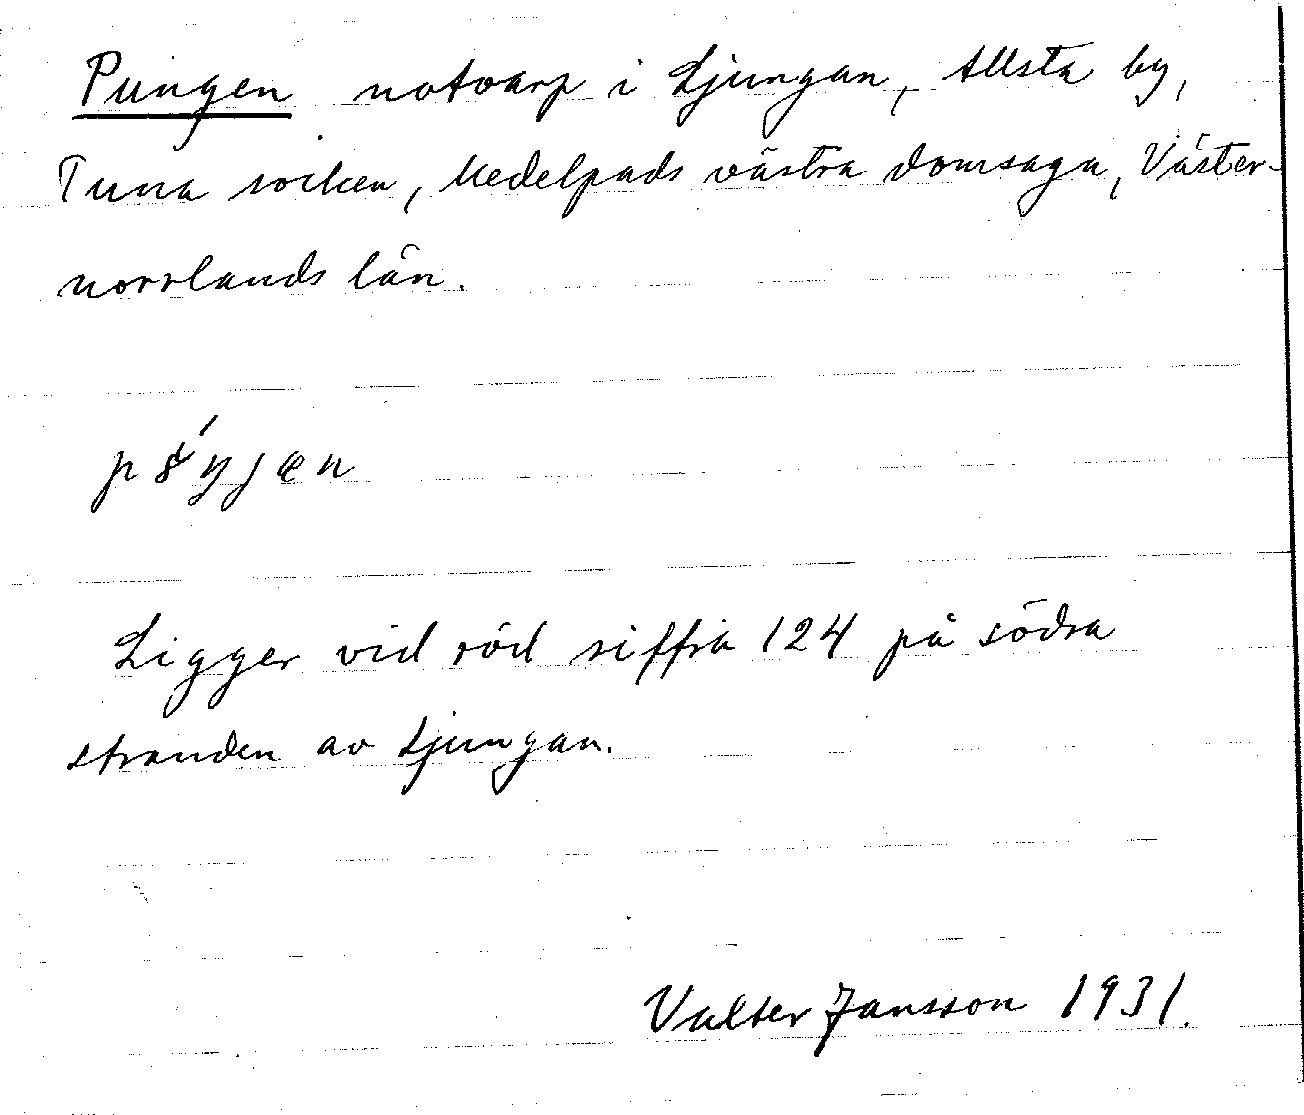 Pungen notvarp i Ljungan, Allsta by,
Tuna socken, Medelpads västra domsaga, Väster-
norrlands län.
Ligger vid röd siffra 124 på södra
stranden av Ljungan.
Valter Jansson 1931.